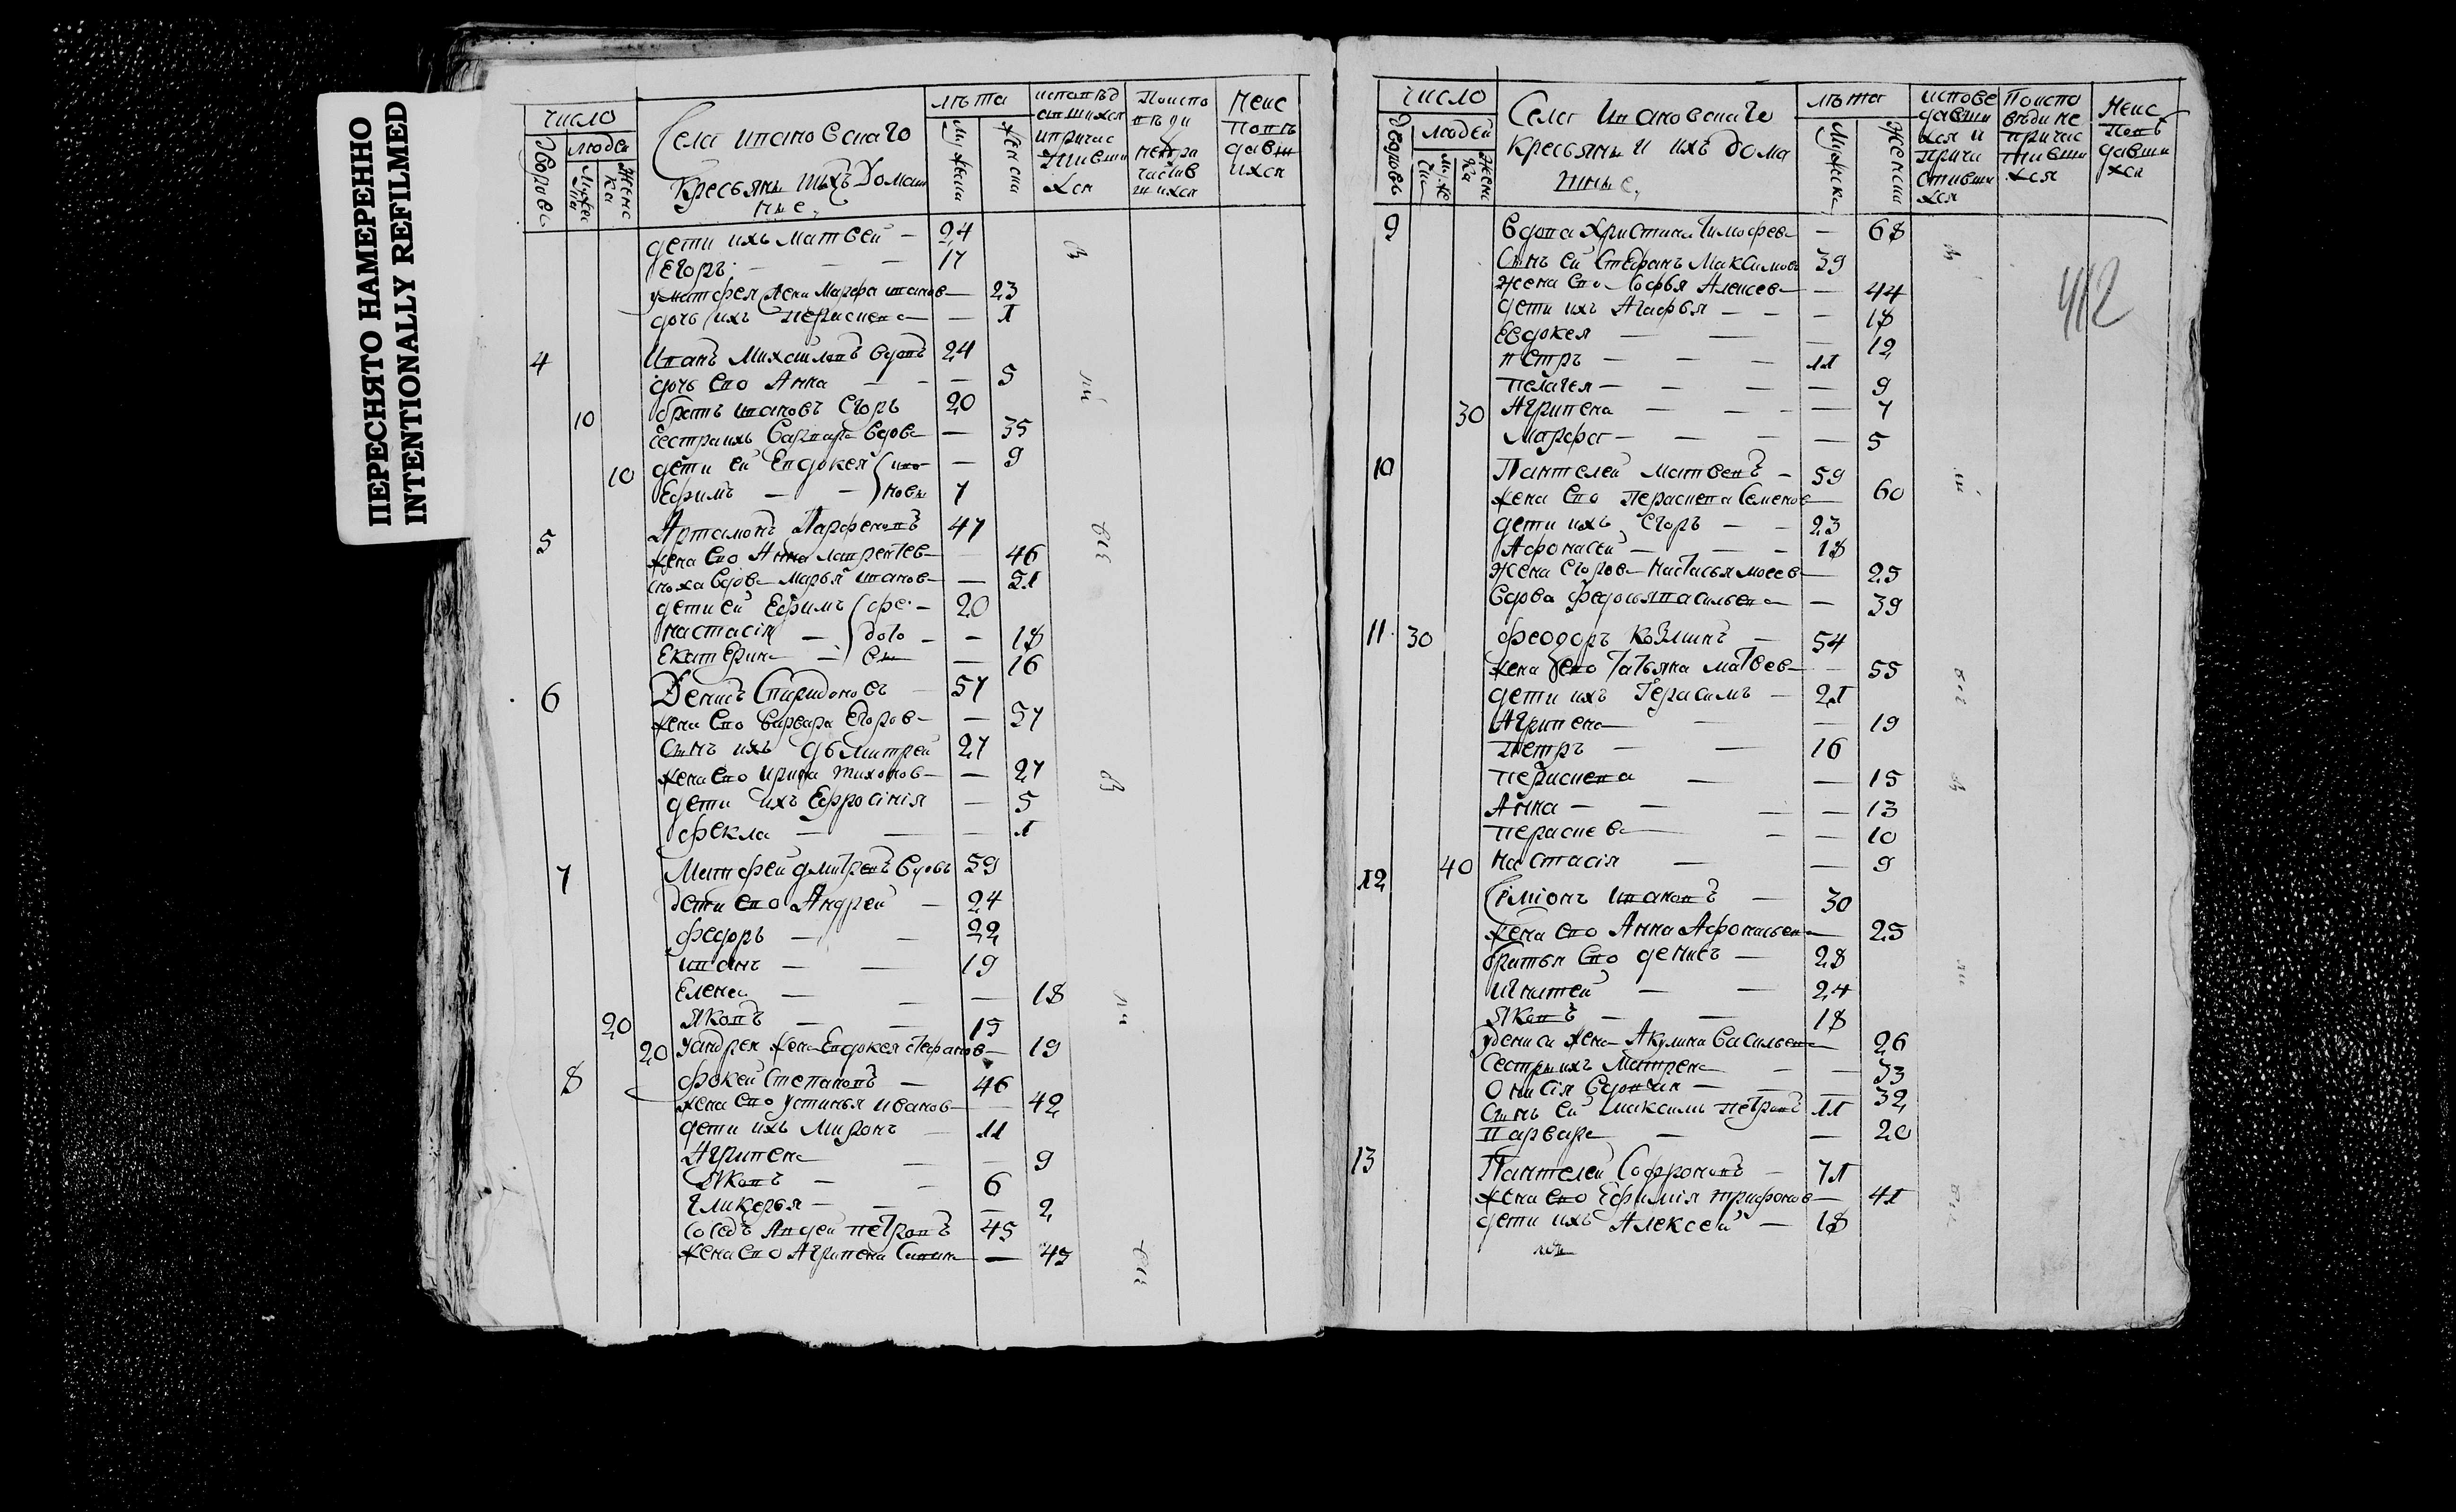 ПЕРЕСНЯТО НАМЕРЕННО
INTENTIONALLY REFILMED
число
людей
дворовъ
Села Ивановскаго
Крестьянъ ихъ Домаш
ние.
лѣта
Неис
повѣ
давш
ихся
дети ихъ Матвей — 24
Егоръ — — — 17
у матфея жена Марфа иванов — 23
дочь ихъ Параскева — — 1
4 Иванъ Михайловъ вдовъ 24
дочь его Анна — — — 5
10 братъ ивановъ Егоръ 20
сестра ихъ Варвара вдова — 35
10 дети ей Евдокея — 9
Ефимъ — — 7
5 Артамонъ Парфеновъ 47
жена его Анна лаврентев — 46
сноха вдова Марья иванов — 51
дети ей Ефимъ фе — 20
настасія — дото — — 18
Екатерина — 16
6 Денисъ Спиридоновъ — 57
жена его варвара Егоров — — 57
сынъ ихъ дьмитрей 27
жена его ирина тихонов — — 27
дети ихъ Ефросінія — 5
фекла — — — 1
7 Матфей дмитревъ вдовъ 59
дети его Андрей — 24
федоръ — — 22
иванъ — — 19
Елена — — — 18
20 Яковъ — — 15
20 у андрея жена Евдокея стефанов — 19
8 фокей Степановъ — 46
жена его устинья иванов — — 42
дети ихъ Миронъ — 11
Агрипена — — 9
Яковъ — — 6
гликерья — — — 2
Соседъ Андей петровъ 45
жена его Агрипена — 43
число
людей
дворовъ
Села Ивановскаго
Крестьянъ и ихъ дома
шние.
лѣта
мужска
женски
испове
давши
хся и
прича
стивши
хся
Поиспо
вѣди не
причас
тивши
хся
Неис
повѣ
давши
хся
412
9 Вдова Христина Тимофев — 68
Сынъ ей Стефанъ Максимовъ 39
жена его Софья Алексев — — 44
дети ихъ Агафья — — — 18
Евдокея — — — 12
петръ — — — 11
пелагея — — — — 9
30 Агрипена — — — — 7
Марфа — — — — 5
10 Пантелей матвевъ — 59
жена его Пераскева Семенов — 60
дети ихъ Егоръ — — 23
Афонасей — — — 18
жена Егорова Настасья моеев — 25
вдова федосья васильева — 39
11 30 феодоръ Козминъ — 54
жена его Татьяна матвев — — 55
дети ихъ Герасимъ — 21
Агрипена — — 19
Петръ — — 16
пераскева — — 15
Анна — — — — 13
пераскева — — — 10
40 настасія — — 9
12 Сіміонъ ивановъ — 30
жена его Анна Афонасьева — 25
братья его денисъ — 28
игнатей — — 24
Яковъ — — 18
у дениса жена Акулина васильева 26
сестры ихъ Матрена — — 33
Онисія — — 32
сынъ ей максимъ петровъ 11
Варвара — — 20
13 Пантелей Софроновъ — 71
жена его Ефимія трифонов — 41
дети ихъ Алексей — 18